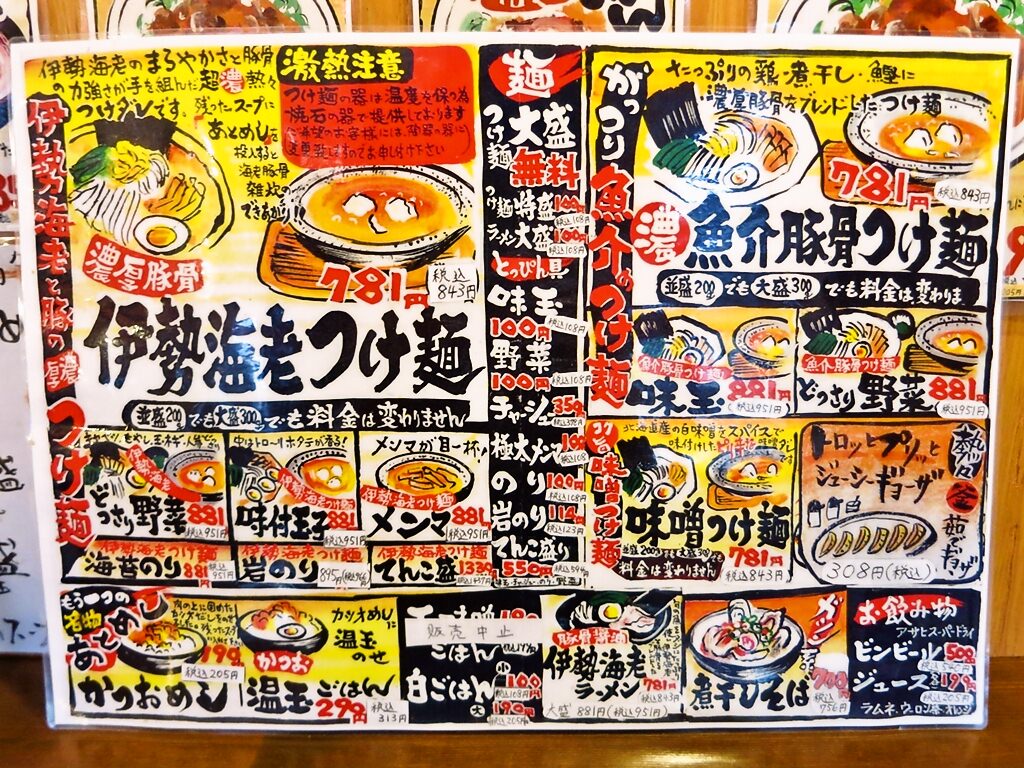 伊勢海老のまろやかさと豚骨
の力強さが手を組んだ超濃熱々
つけダレです。残ったスープに
あとめしを
投入すると
海老豚骨
雑炊の
できあがり!!
激熱注意
つけ麺の器は温度を保つ為
焼石の器で提供しております
ご希望のお客様には、陶器の器に
変更致しますのでお申し付け下さい
伊勢海老と豚の濃厚つけ麺
濃厚豚骨
781円
税込
843円
伊勢海老つけ麺
並盛200gでも大盛300gでも料金は変わりません
どっさり野菜
881
税込951円
中はトローリホタテが香る!
伊勢海老つけ麺
味付玉子
881
税込951円
メンマが目一杯!
伊勢海老つけ麺
メンマ
881
税込951円
伊勢海老つけ麺
海苔のり
881円
税込951円
伊勢海老つけ麺
岩のり
895円
伊勢海老つけ麺
てんこ盛
麺
つけ麺
大盛
無料
つけ麺 特盛
100円
税込108円
ラーメン大盛
100円
税込108円
とっぴん具
味玉
100円
税込108円
野菜
100円
税込108円
チャーシュー
極太メンマ
のり
100円
税込108円
岩のり
114
税込123円
てんこ盛り
550円
税込594円
がっつり魚介のつけ麺
たっぷりの鶏・煮干し・鰹に
濃厚豚骨をブレンドしたつけ麺
781円
税込843円
濃
魚介豚骨つけ麺
並盛200gでも大盛300gでも料金は変わりま
魚介豚骨つけ麺
味玉
881円
税込951円
魚介豚骨つけ麺
どっさり野菜
881
税込951円
北海道産の白味噌をスパイスで
味付けした
味噌つけ麺
並盛200gでも大盛300gでも
料金は変わりません
781円
税込843円
トロッとプリッと
ジューシーギョーザ
熱々
釜茹でギョーザ
308円(税込)
もう一つの
名物
あとめし
199円
税込205円
かつおめし
カツオめしに
温玉
のせ
かつお
温玉ごはん
299円
税込
313円
販売中止
ごはん
白ごはん
小
100
税込108円
大
190円
税込205円
豚骨醤油
伊勢海老
ラーメン
781円
税込843円
大盛 881円(税込951円)
煮干しそば
700円
税込
756円
お飲み物
アサヒスーパードライ
ビンビール
500円
税込540円
ジュース
各199
税込205円
ラムネ、ウーロン茶、オレンジ